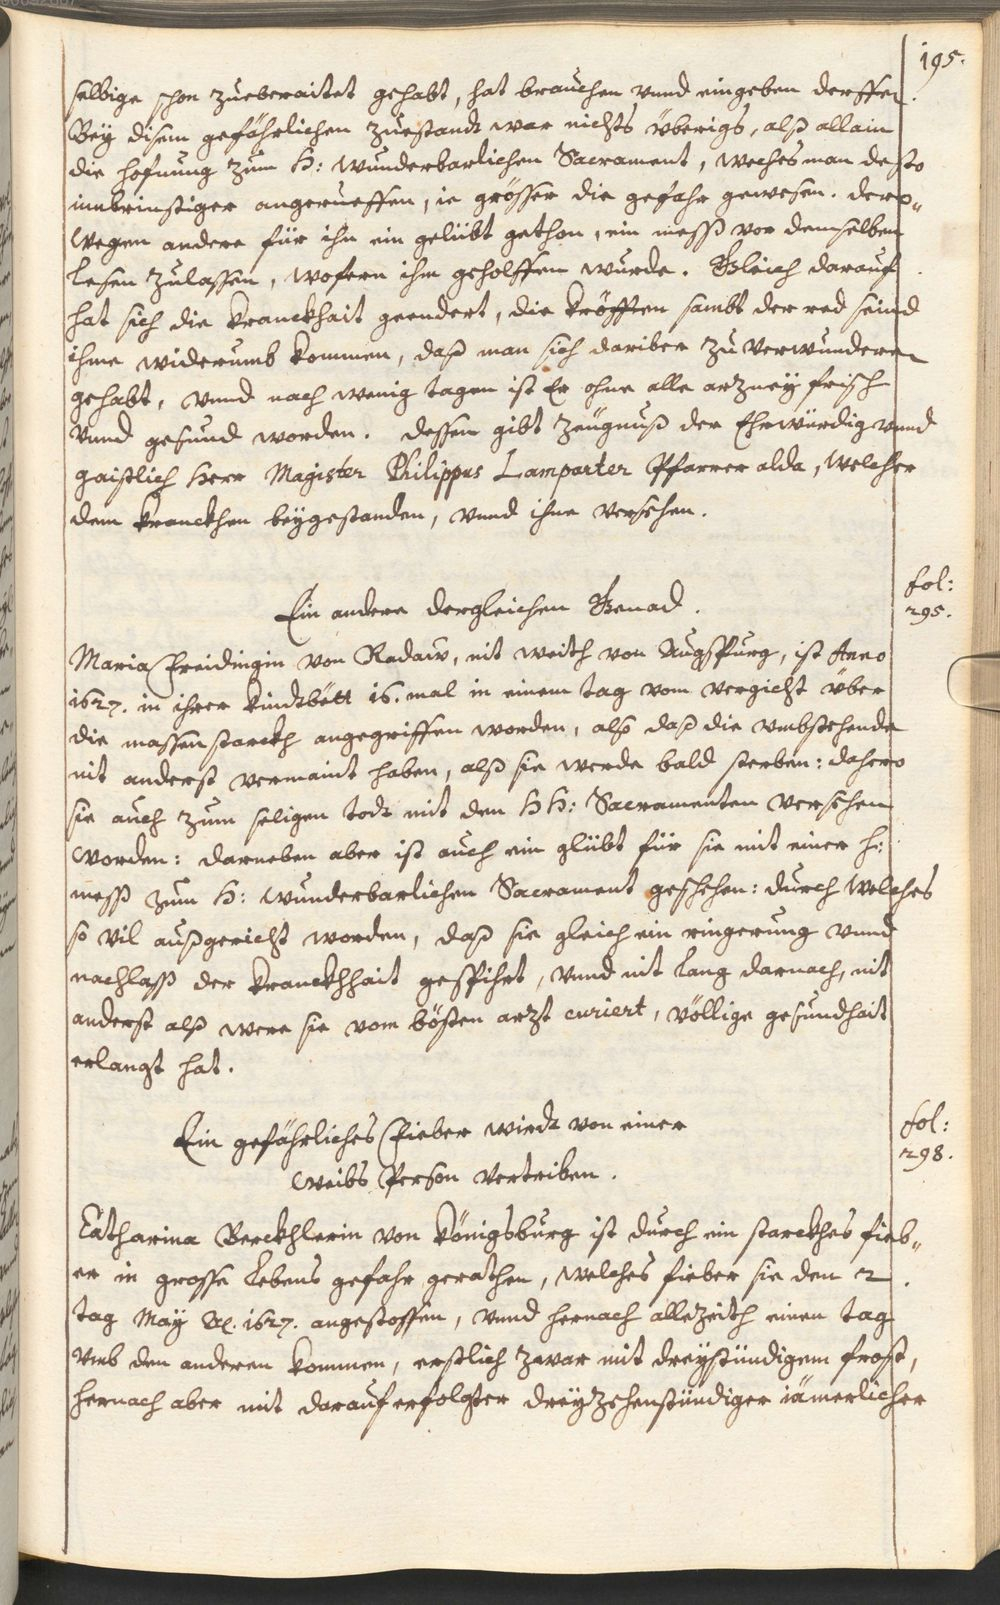 195.
selbige schon zueberaitet gehabt, hat brauchen vnnd eingeben derffen.
Bey disem gefährlichen zuestandt war nichts überigs, alß allain
die hofnung zum H: Wunderbarlichen Sacrament, weches man desto
innbrinstiger angerueffen, ie grösser die gefahr gewesen. dero„
wegen andere für ihn ein gelübt gethon, ein mess vor demselben
lesen zulassen, wofern ihm geholffen wurde. Gleich darauf
hat sich die kranckhait geendert, die kröfften sambt der red seind
ihme widerumb kommen, daß man sich dariber zu verwunderen
gehabt, vnnd nach wenig tagen ist Er ohne alle artzney frisch
vnnd gesund worden. dessen gibt zeugnuß der Ehrwürdig vnnd
gaistlich Herr Magister Philippus Lamparter Pfarrer alda, welcher
dem kranckhen beygestanden, vnnd ihne versehen.
Ein andere dergleichen Genad.
fol:
295.
Maria Freidingin von Radaw, nit weith von Augspurg, ist Anno
1627. in ihrer kindtbett 16. mal in einem tag vom vergicht über
die massen starckh angegriffen worden, alß daß die vmbstehende
nit anderst vermaint haben, alß sie werde bald sterben: dahero
sie auch zum seligen todt mit den HH: Sacramenten versehen
worden: darneben aber ist auch ein glübt für sie mit einer h:
mess zum H: Wunderbarlichen Sacrament geschehen: durch welches
so vil außgericht worden, daß sie gleich ein ringerung vnnd
nachlaß der kranckhhait gespihrt, vnnd nit lang darnach, nit
anderst alß were sie vom bösten arzt curiert, völlige gesundhait
erlangt hat.
Ein gefährliches Fieber wirdt von einer
weibs Person vertriben.
fol:
298.
Catharina Berckhlerin von Königsburg ist durch ein starckhes fieb„
er in grosse lebens gefahr gerathen, welches fieber sie den 2.
tag May Ao. 1627. angestossen, vnnd hernach allezeith einen tag
vmb den anderen kommen, erstlich zwar mit dreystündigem frost,
hernach aber mit darauf erfolgter dreyzehenstündiger iämerlicher